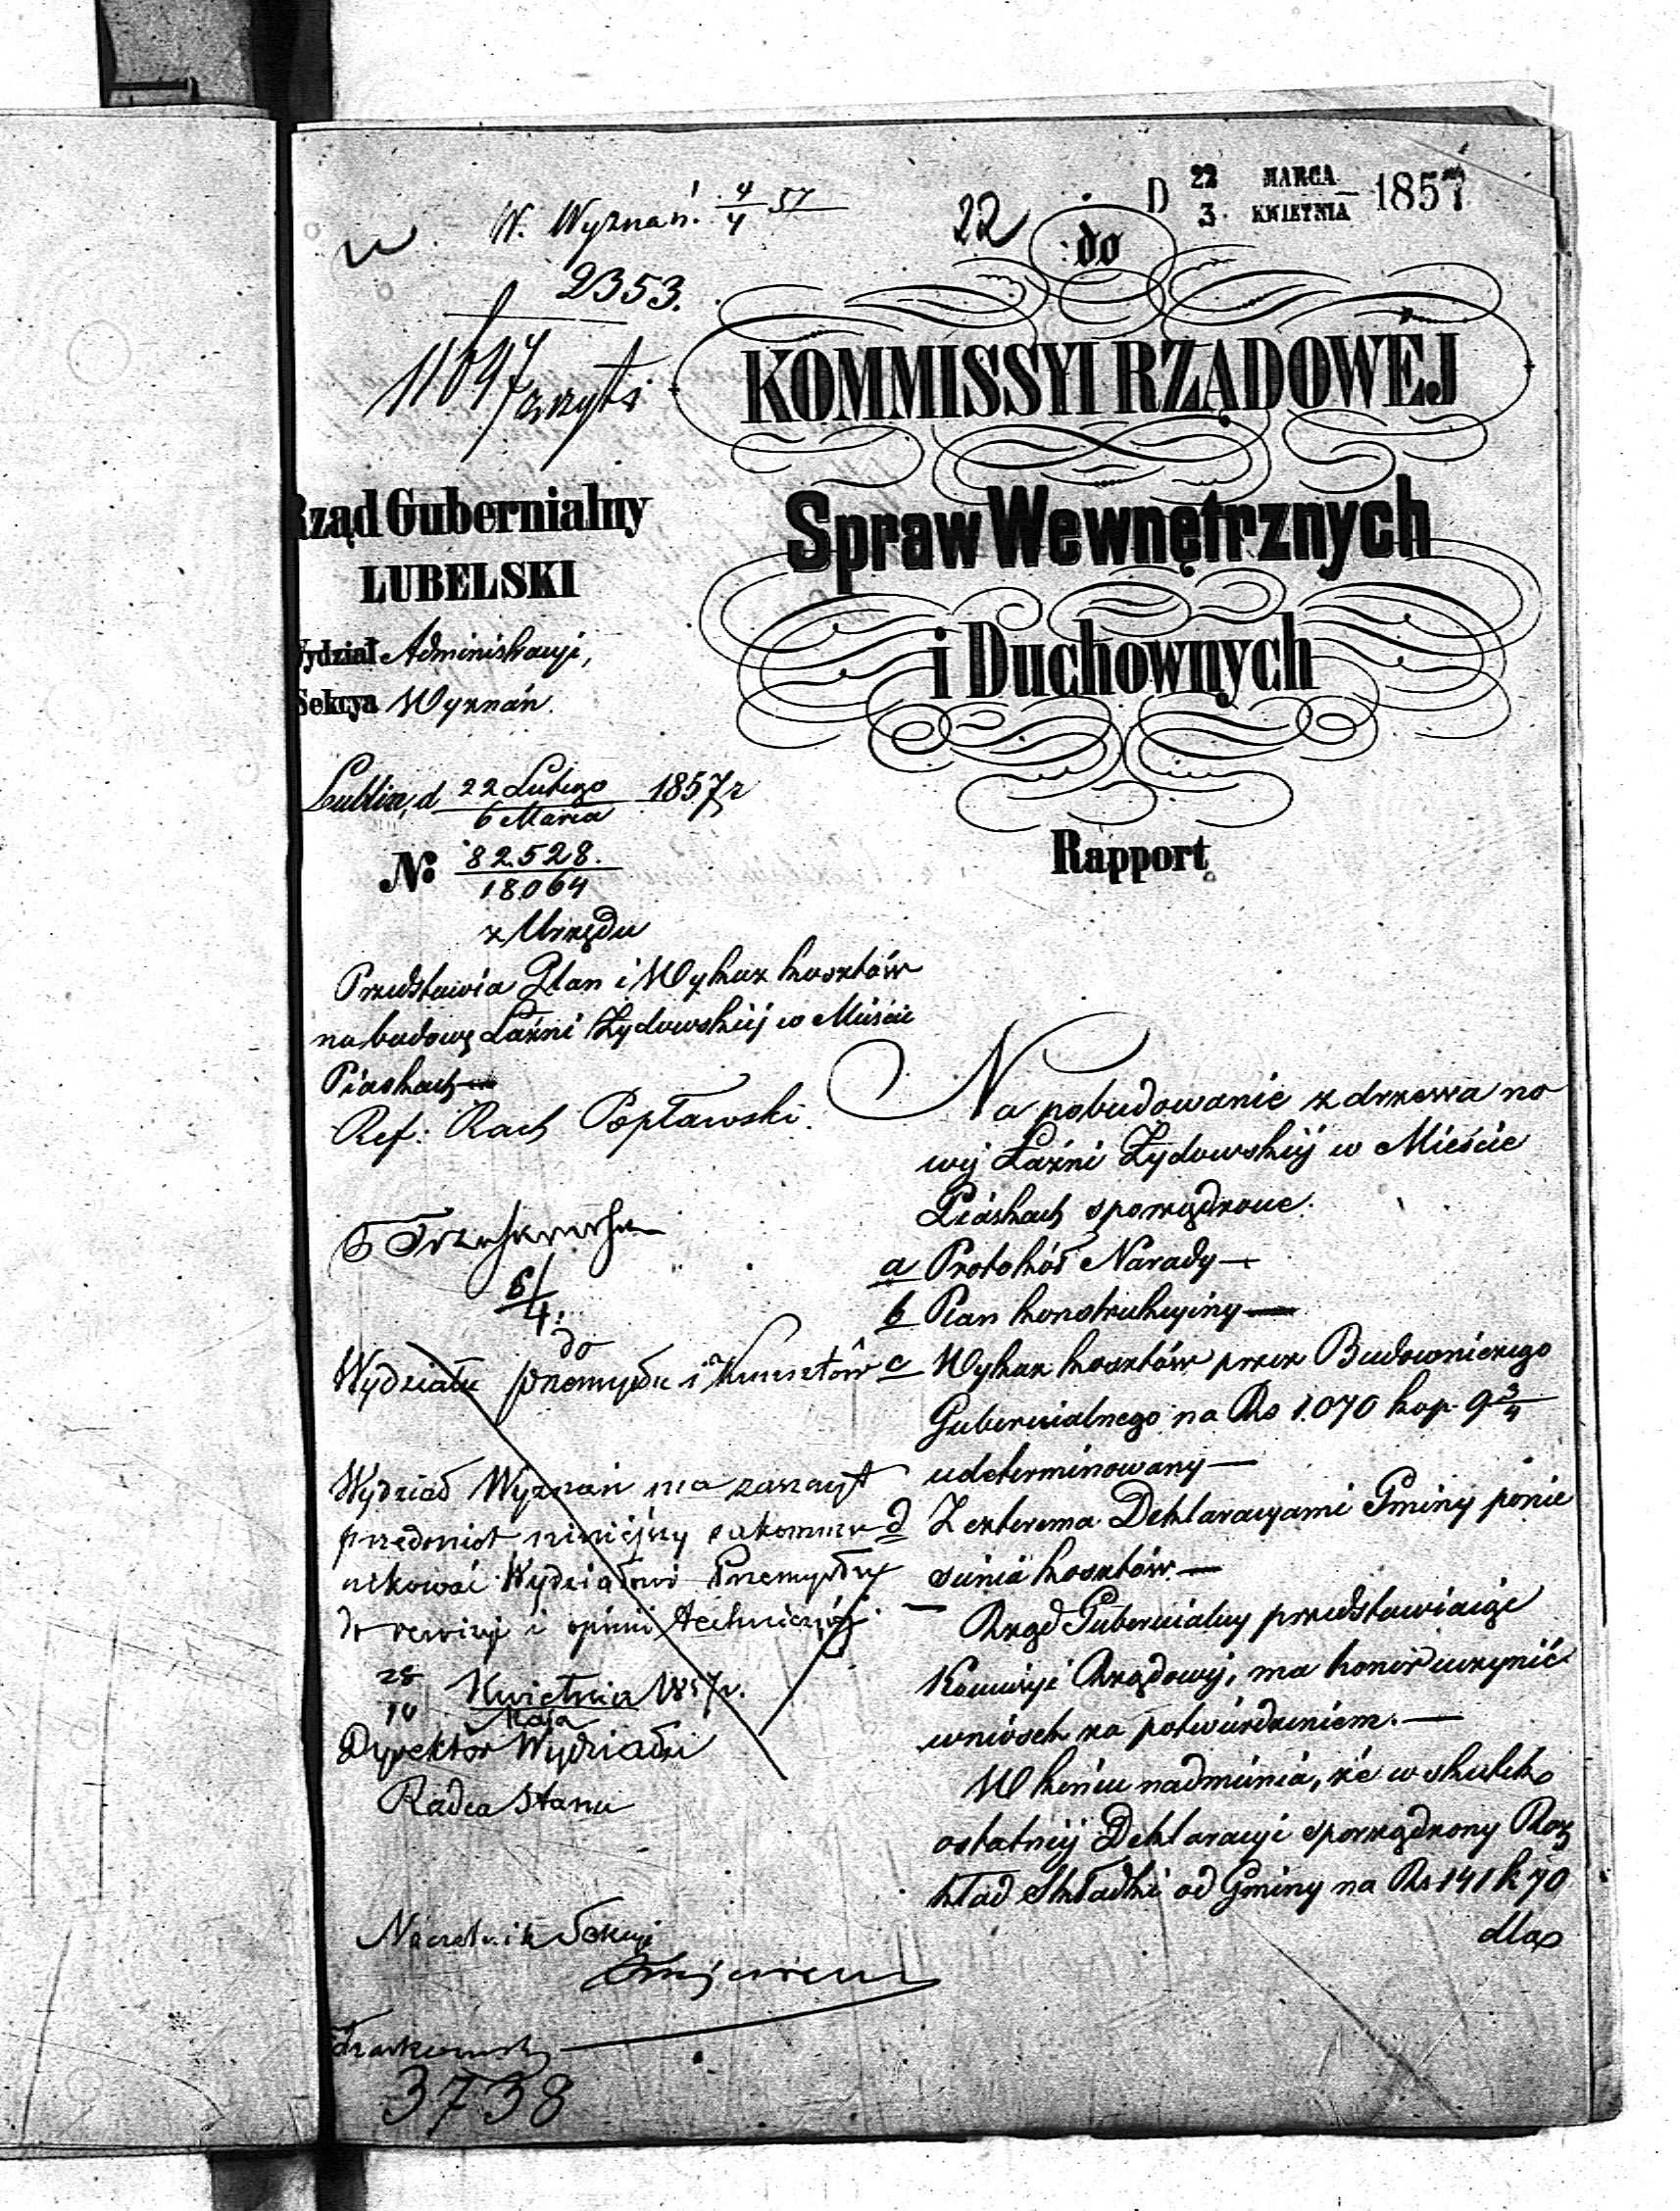 W. Wyznań. 4/4 57
2353.
22
D 22 MARCA 1857
3 KWIETNIA
do
KOMMISSYI RZĄDOWEJ
Spraw Wewnętrznych
i Duchownych
Rapport
Rząd Gubernialny
LUBELSKI
Wydział Administracyi,
Sekcya Wyznań.
Lublin, d 22 Lutego 1857 r
6 Marca
No 82.528.
18064
z Urzędu
Przedstawia Plan i Wykaz kosztów
na budowę Łaźni Żydowskiej w Mieście
Piaskach
Ref: Rach Popławski.
6/4
do
Wydziału Przemysłu i Kunsztów
Wydział Wyznań ma zaszczyt
przedmiot niniejszy zakommu
nikować Wydziałowi Przemysłu
do rewizyi i opinii technicznej.
28 Kwietnia 1857 r.
10 Maja
Dyrektor Wydziału
Radca Stanu
Naczelnik Sekcyi
3738
Na pobudowanie z drzewa no
wej Łaźni Żydowskiej w Mieście
Piaskach sporządzone.
a Protokół Narady
b Plan konstrukcyiny
c Wykaz kosztów przez Budowniczego
Gubernialnego na Rs 1.070 kop. 9 3/4
udeterminowany
d Z czterema Deklaracyami Gminy ponie
sienia kosztów
Rząd Gubernialny przedstawiaiąc
Kommisyi Rządowej, ma honor uczynić
wniosek za potwierdzeniem.
W końcu nadmienia, że w skutek
ostatniej Deklaracyi sporządzony Roz
kład Składki od Gminy na Rs 141 k 70
dla